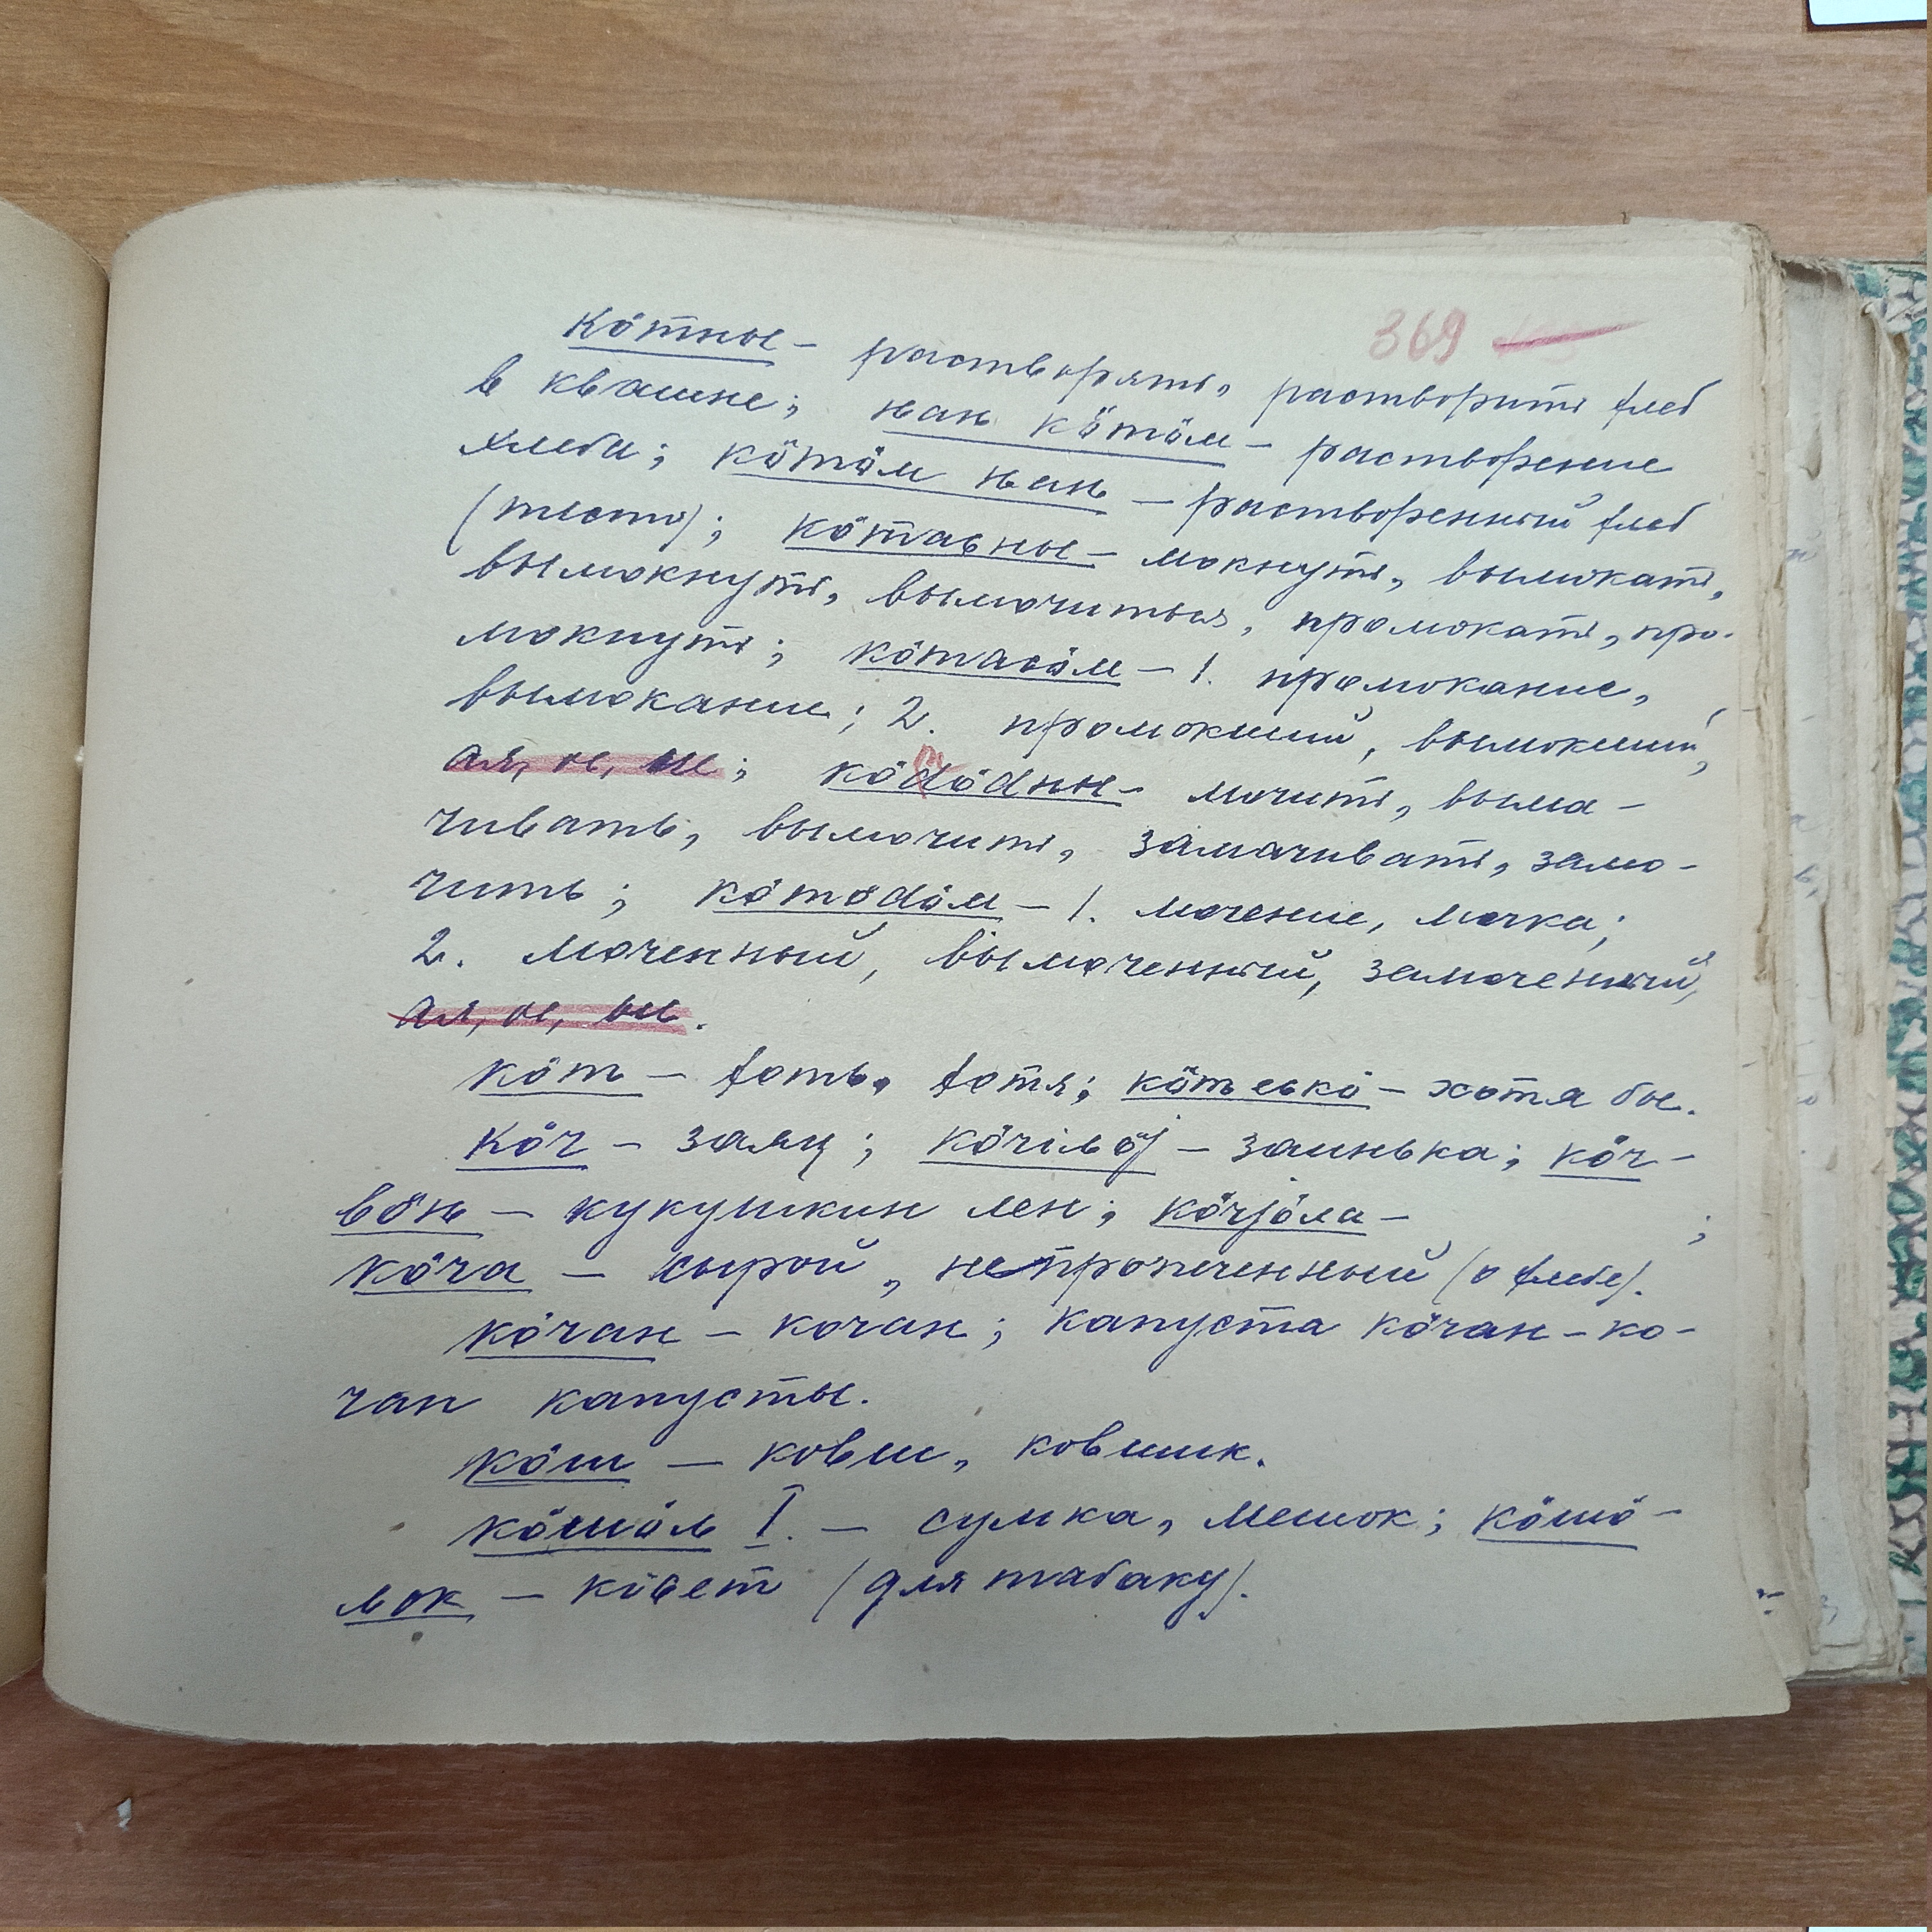 369
кӧтны – растворять, растворить хлеб
в квашне; нань кӧтӧм – растворение
хлеба; кӧтӧм нань – растворенный хлеб
(тесто); кӧтасны – мокнуть, вымокать,
вымокнуть, вымочиться, промокать, про-
мокнуть; кӧтасӧм – 1. промокание,
вымокание; 2. промокший, вымокший,
ая, ое, ые; кӧтӧдны – мочить, выма-
чивать, вымочить, замачивать, замо-
чить; кӧтӧдӧм – 1. мочение, мочка;
2. моченный, вымоченный, замоченный,
ая, ое, ые.
кӧть – хоть, хотя; кӧть еськӧ – хотя бы.
Кӧч – заяц; кӧчільӧј – заинька; кӧч-
вӧнь – кукушкин лен; кӧчјӧла – ;
кӧча – сырой, непропеченный (о хлебе).
кӧчан – кочан; капуста кӧчан – ко-
чан капусты.
кӧш – ковш, ковшик.
кӧшӧль I. – сумка, мешок; кӧшӧ-
льок – кісет (для табаку).